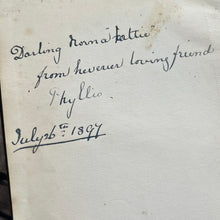 Darling Norna Lottie
from her ever loving friend
Phyllis.
July 26th 1897